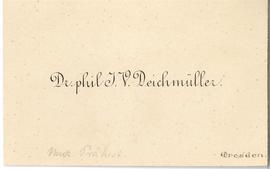 Dr. phil J. V. Deichmüller.
Prähist.
Dresden.